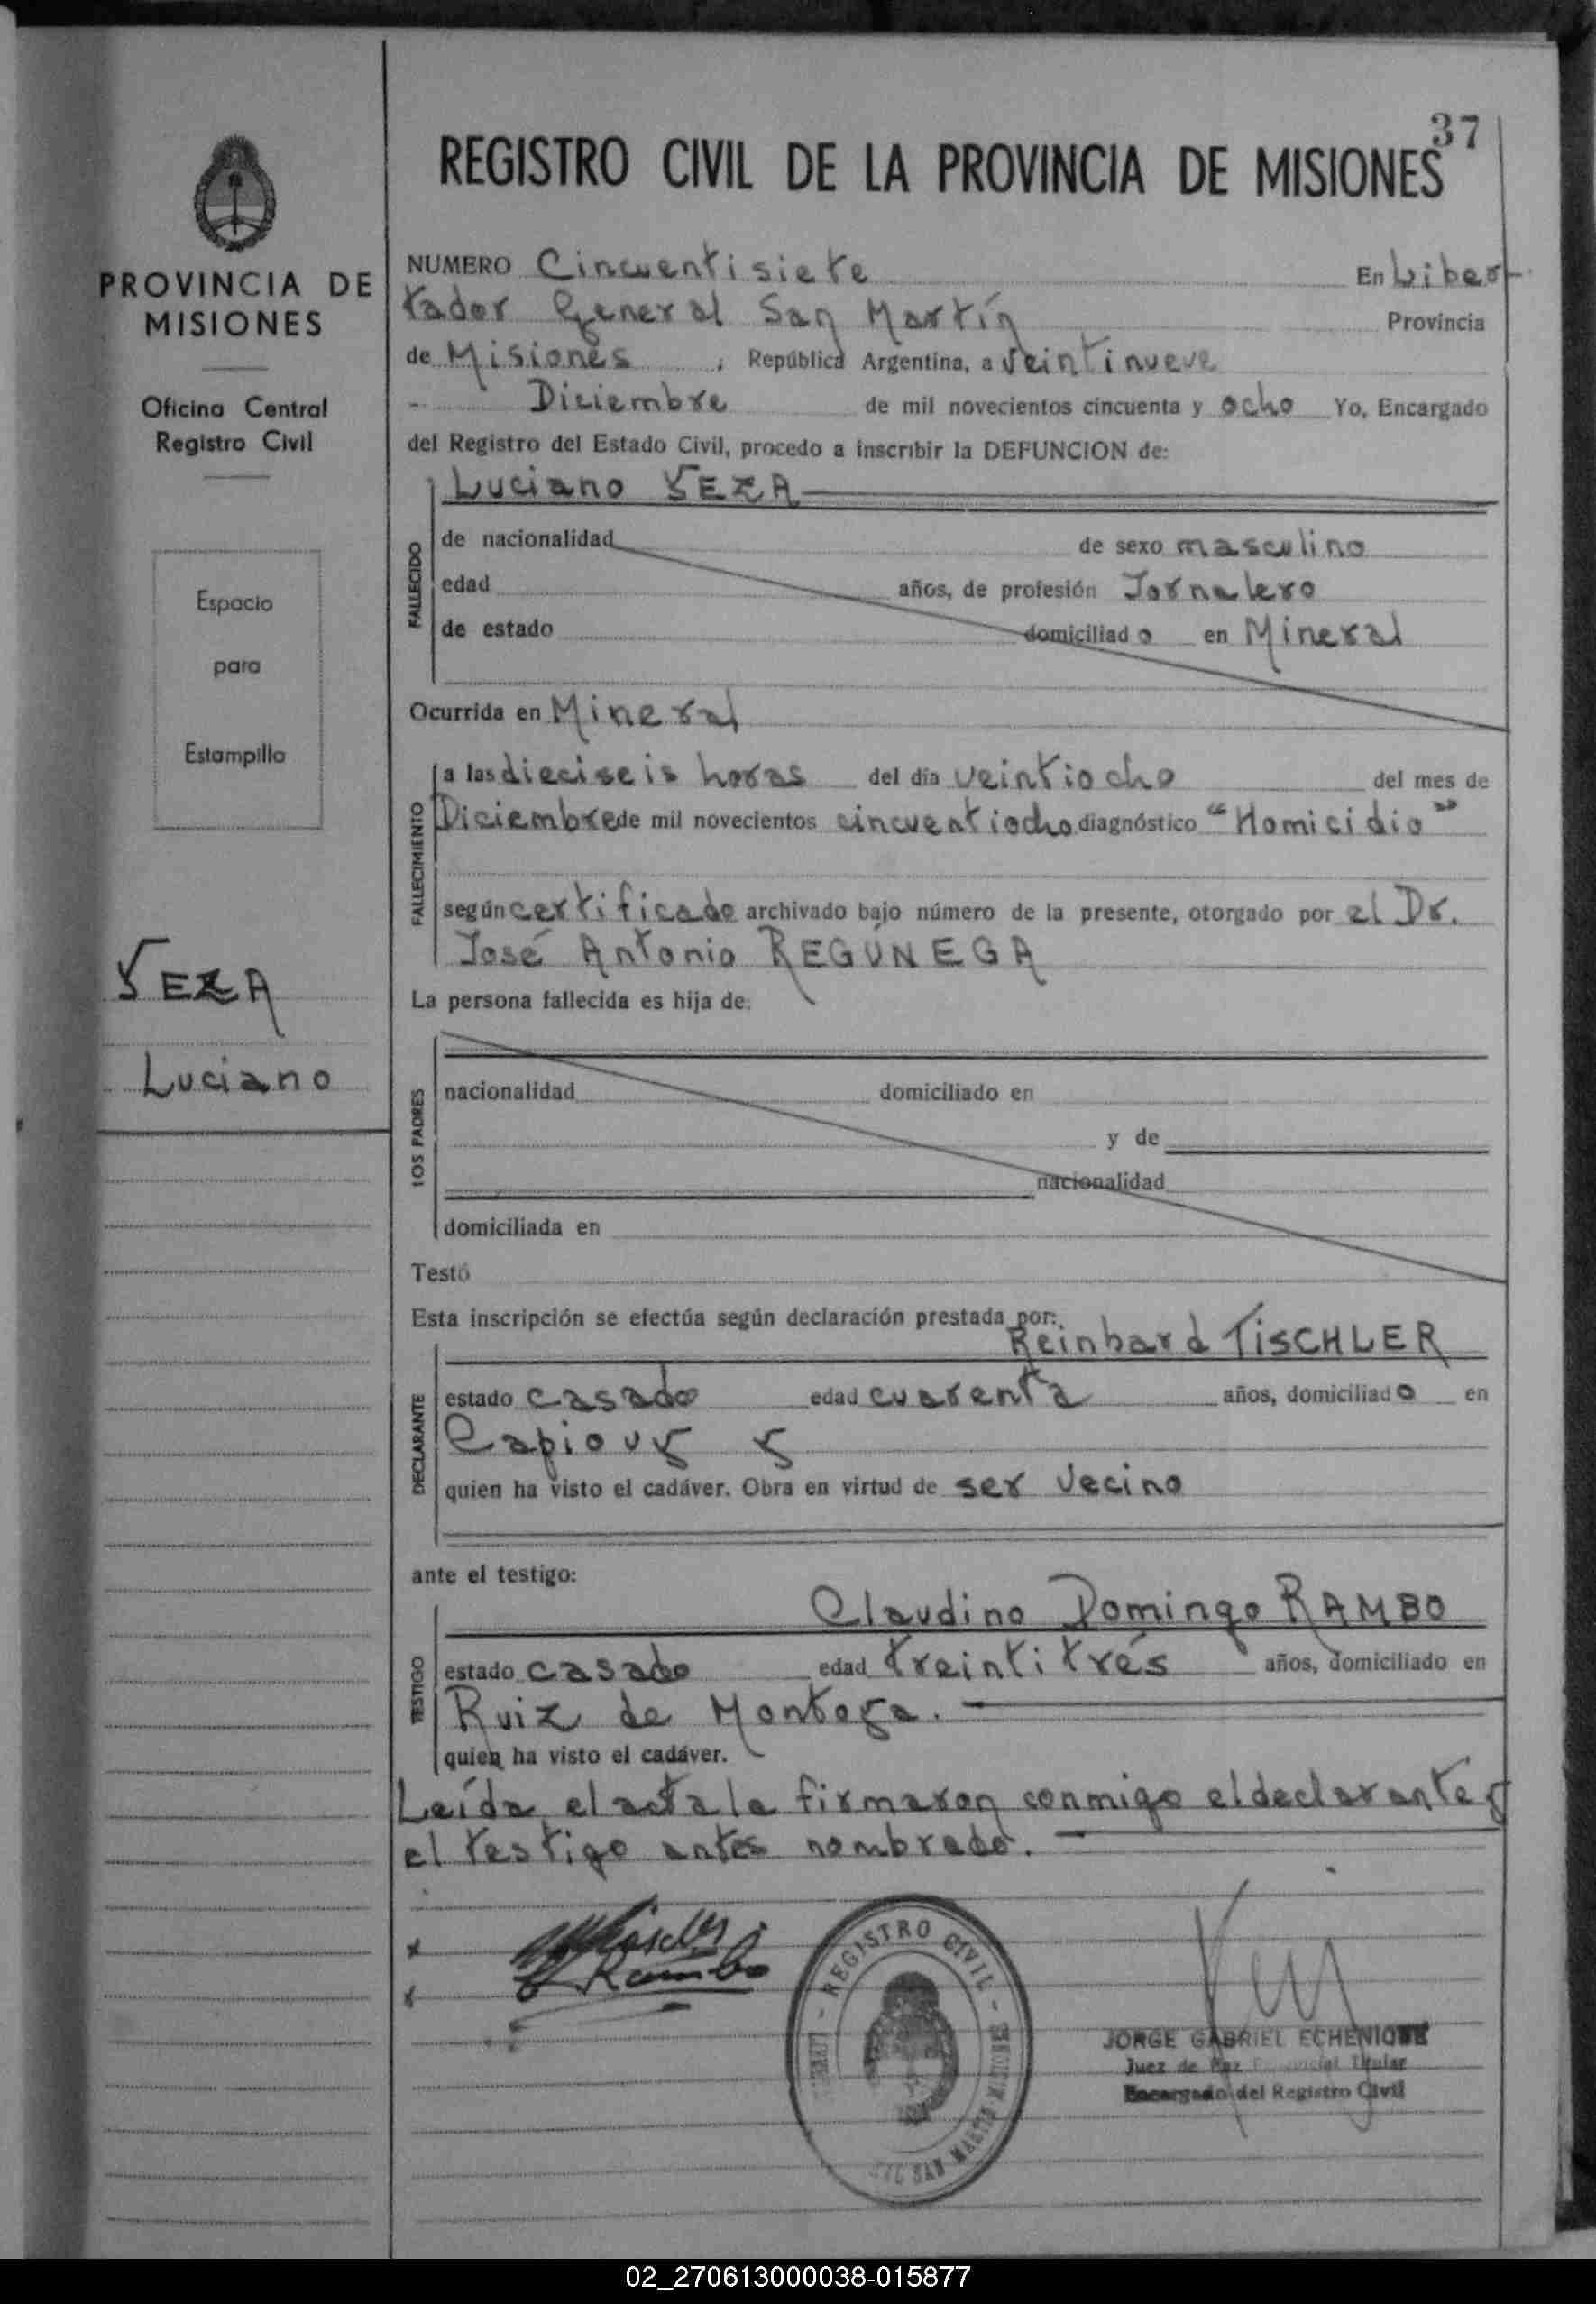 37
REGISTRO CIVIL DE LA PROVINCIA DE MISIONES
PROVINCIA DE
MISIONES
Oficina Central
Registro Civil
Espacio
para
Estampilla
VEZA
Luciano
NUMERO Cincuentisiete En Liber-
tador General San Martín Provincia
de Misiones, República Argentina, a veintinueve
Diciembre de mil novecientos cincuenta y ocho Yo, Encargado
del Registro del Estado Civil, procedo a inscribir la DEFUNCION de:
Luciano VEZA
FALLECIDO
de nacionalidad de sexo masculino
edad años, de profesión Jornalero
de estado domiciliado en Mineral
Ocurrida en Mineral
FALLECIMIENTO
a las dieciseis horas del día veintiocho del mes de
Diciembre de mil novecientos cincuentiocho diagnóstico "Homicidio"
según certificado archivado bajo número de la presente, otorgado por el Dr.
José Antonio REGÚNEGA
La persona fallecida es hija de:
LOS PADRES
nacionalidad domiciliado en
y de
nacionalidad
domiciliada en
Testó
Esta inscripción se efectúa según declaración prestada por:
Reinhard TISCHLER
DECLARANTE
estado casado edad cuarenta años, domiciliado en
Capiovy y
quien ha visto el cadáver. Obra en virtud de ser vecino
ante el testigo:
Claudino Domingo RAMBO
TESTIGO
estado casado edad treintitrés años, domiciliado en
Ruiz de Montoya.
quien ha visto el cadáver.
Leída el acta la firmaron conmigo el declarante y
el testigo antes nombrado.
Rambo
REGISTRO CIVIL
SAN MARTIN
JORGE GABRIEL ECHENIQUE
Juez de Paz Provincial Titular
Encargado del Registro Civil
02_270613000038-015877